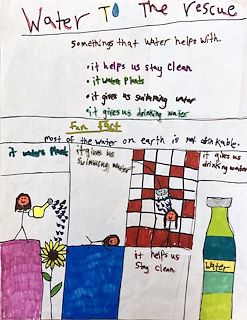 Water To The rescue
Somethings that water helps with.
• it helps us stay clean
• it water plants
• it gives us swimming water
• it gives us drinking water
Fun Fact
most of the water on earth is not drinkable.
it waters plants
it gives us
swimming water
it helps us
stay clean
it gives us
drinking water
Water